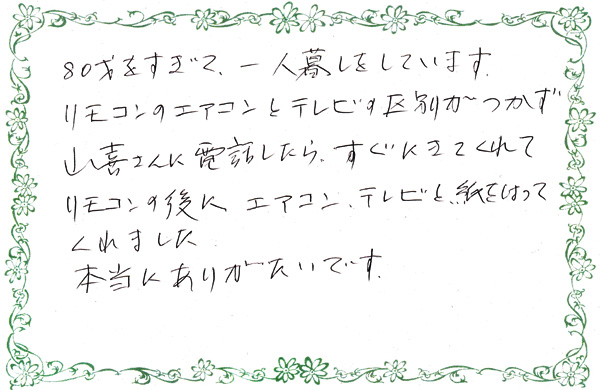 80才をすぎて、一人暮しをしています.
リモコンのエアコンとテレビの区別がつかず
山喜さんに電話したら、すぐにきてくれて
リモコンの後に、エアコン、テレビと、紙をはって
くれました
本当にありがたいです.